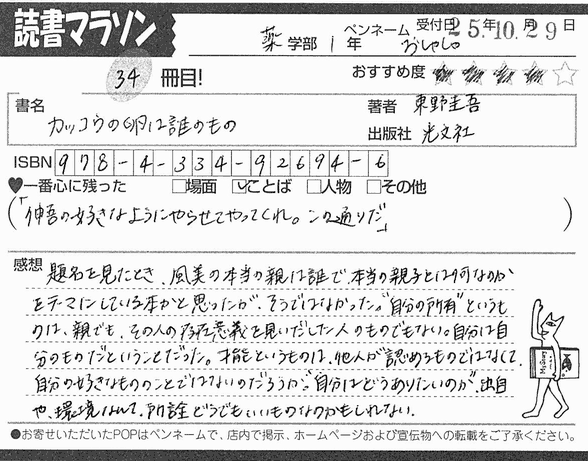 読書マラソン
受付日 25年10月29日
薬学部 1年 ペンネーム おしゃしゃ
34 冊目!
おすすめ度 ★★★★☆
書名 カッコウの卵は誰のもの
著者 東野圭吾
出版社 光文社
ISBN 978-4-334-92694-6
♥一番心に残った □場面 ☑ことば □人物 □その他
(「伸吾の好きなようにやらせてやってくれ。この通りだ」)
感想 題名を見たとき、風美の本当の親は誰で、本当の親子とは何なのか
をテーマにしている本かと思ったが、そうではなかった。"自分の所有"というも
のは、親でも、その人の存在意義を見いだした人のものでもない。自分は自
分のものだということだった。才能というものは、他人が認めるものではなくて、
自分の好きなもののことではないのだろうか。自分はどうありたいのか、出自
や、環境なんて、所詮どうでもいいものなのかもしれない。
●お寄せいただいたPOPはペンネームで、店内で掲示、ホームページおよび宣伝物への転載をご了承ください。